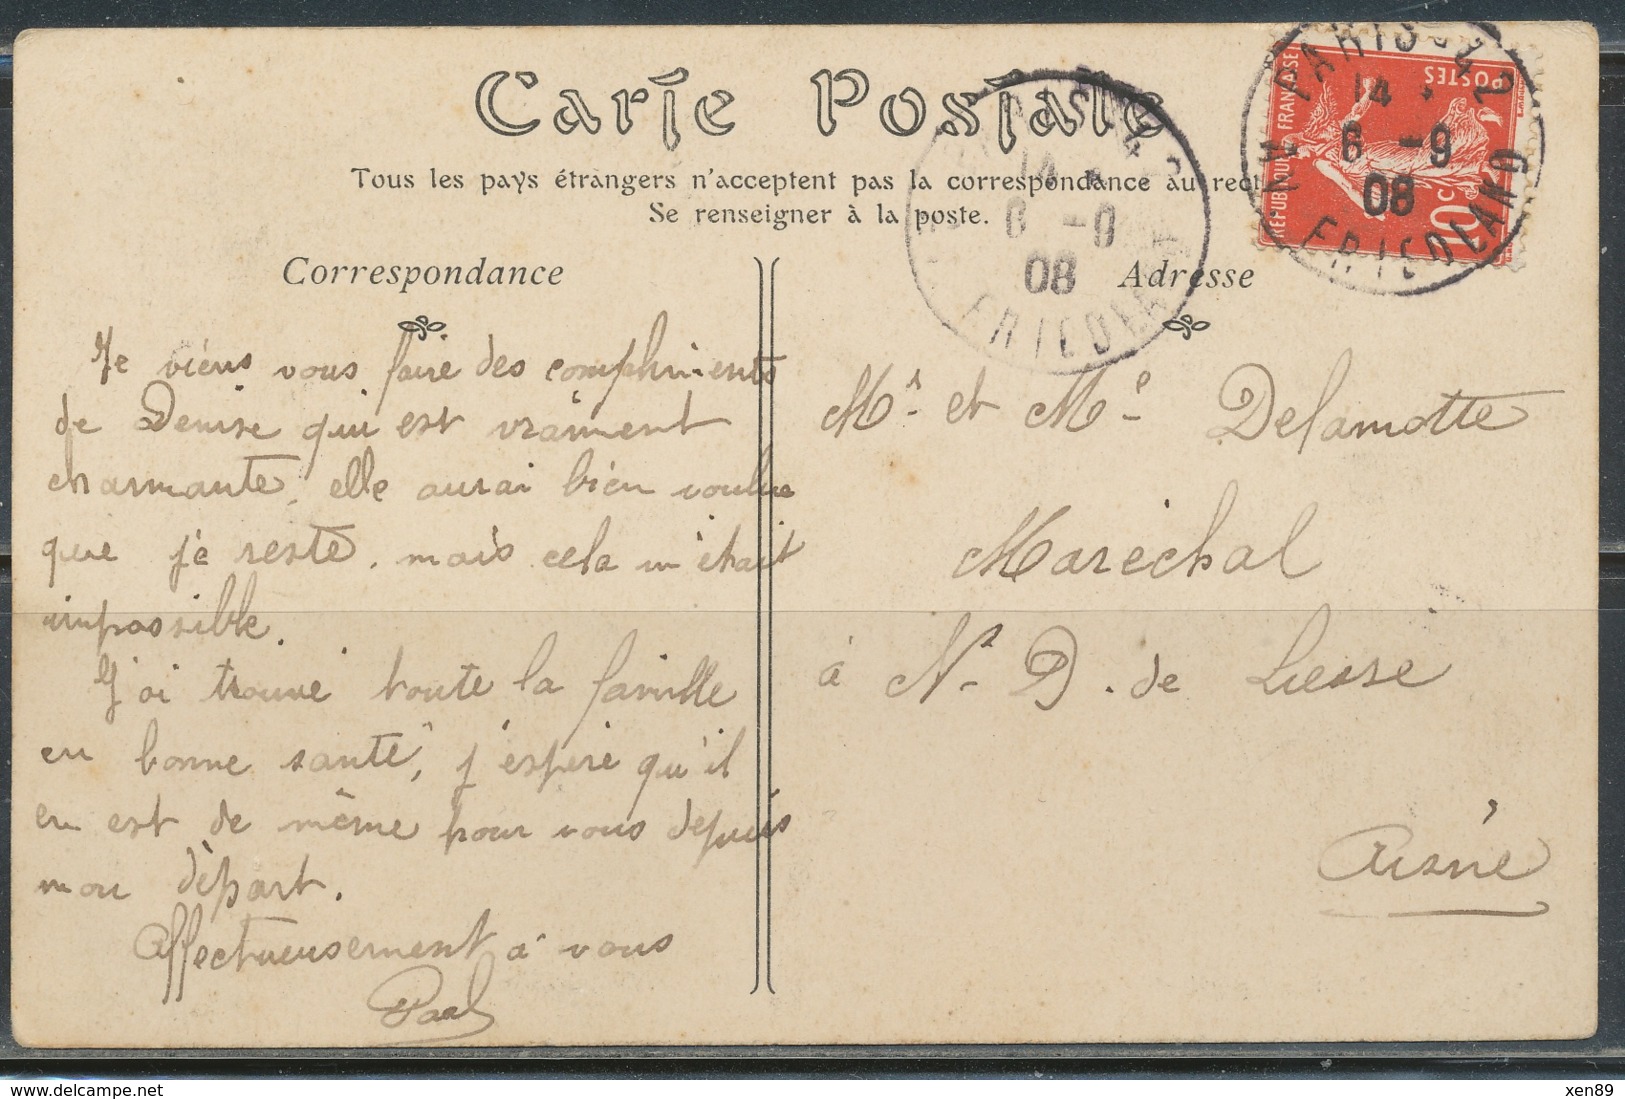 Carte Postale
Tous les pays étrangers n'acceptent pas la correspondance au rect
Se renseigner à la poste.
Correspondance
Je viens vous faire des compliments
de Denise qui est vraiment
charmante, elle aurai bien voulue
que je reste, mais cela m'était
impossible.
J'ai trouvé toute la famille
en bonne santé, j'espère qu'il
en est de même pour vous depuis
mon départ.
Affectueusement à vous
Paul
Adresse
Mr et Me Delamotte
Maréchal
à N. D. de Liesse
Aisne
REPUBLIQUE FRANÇAISE
POSTES
10c
PARIS
14
6 -9
08
FRIEDLAND
14
6 -9
08
FRIEDLAND
delcampe.net
xen89